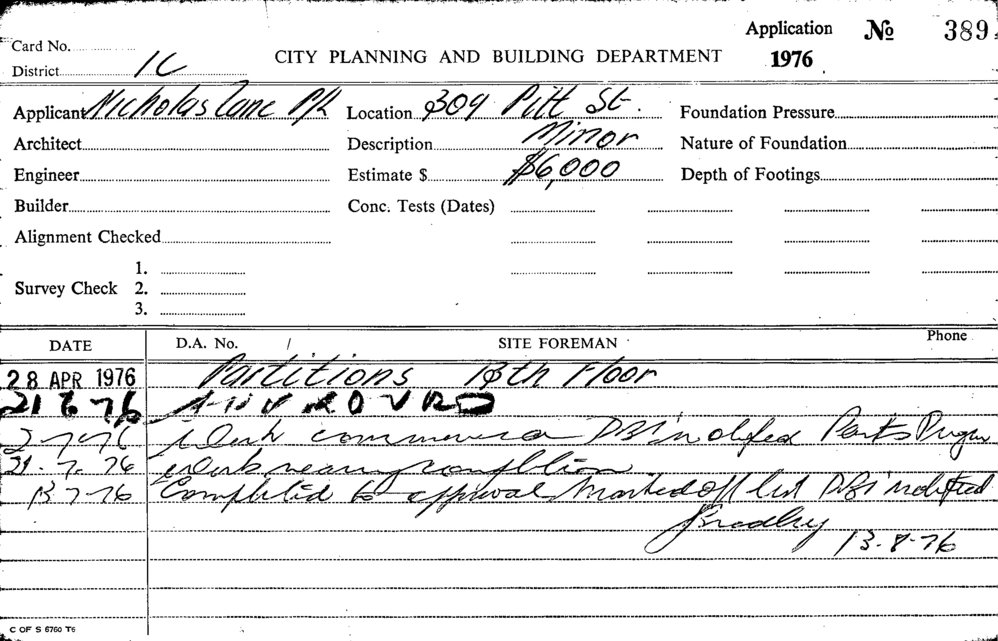 Application № 389
Card No.
District 1C CITY PLANNING AND BUILDING DEPARTMENT 1976
Applicant Nicholas Lane P/L Location 309 Pitt St. Foundation Pressure
Architect Description Minor Nature of Foundation
Engineer Estimate $ $6,000 Depth of Footings
Builder Conc. Tests (Dates)
Alignment Checked
1.
Survey Check 2.
3.
DATE D.A. No. / SITE FOREMAN Phone
28 APR 1976 Partitions 10th Floor
21 6 76 APPROVED
2-7-76 Work commenced DBI notified Parts Progress
21-7-76 Work nearing completion
13 7-76 Completed to approval Marked off list DBI notified
Bradley 13-8-76
C OF S 6760 T6